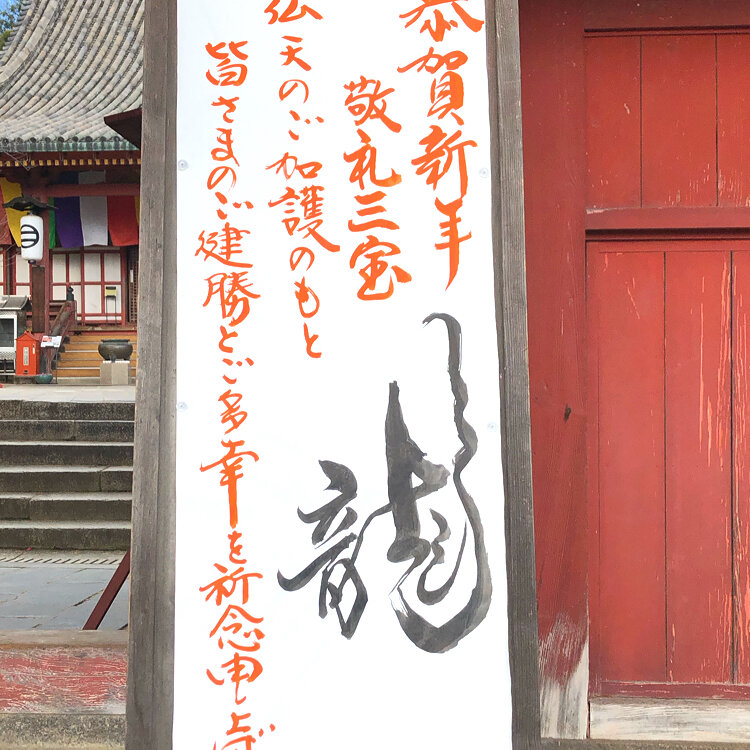 恭賀新年
敬礼三宝
弘天のご加護のもと
皆さまのご健勝とご多幸を祈念申し上げ
龍